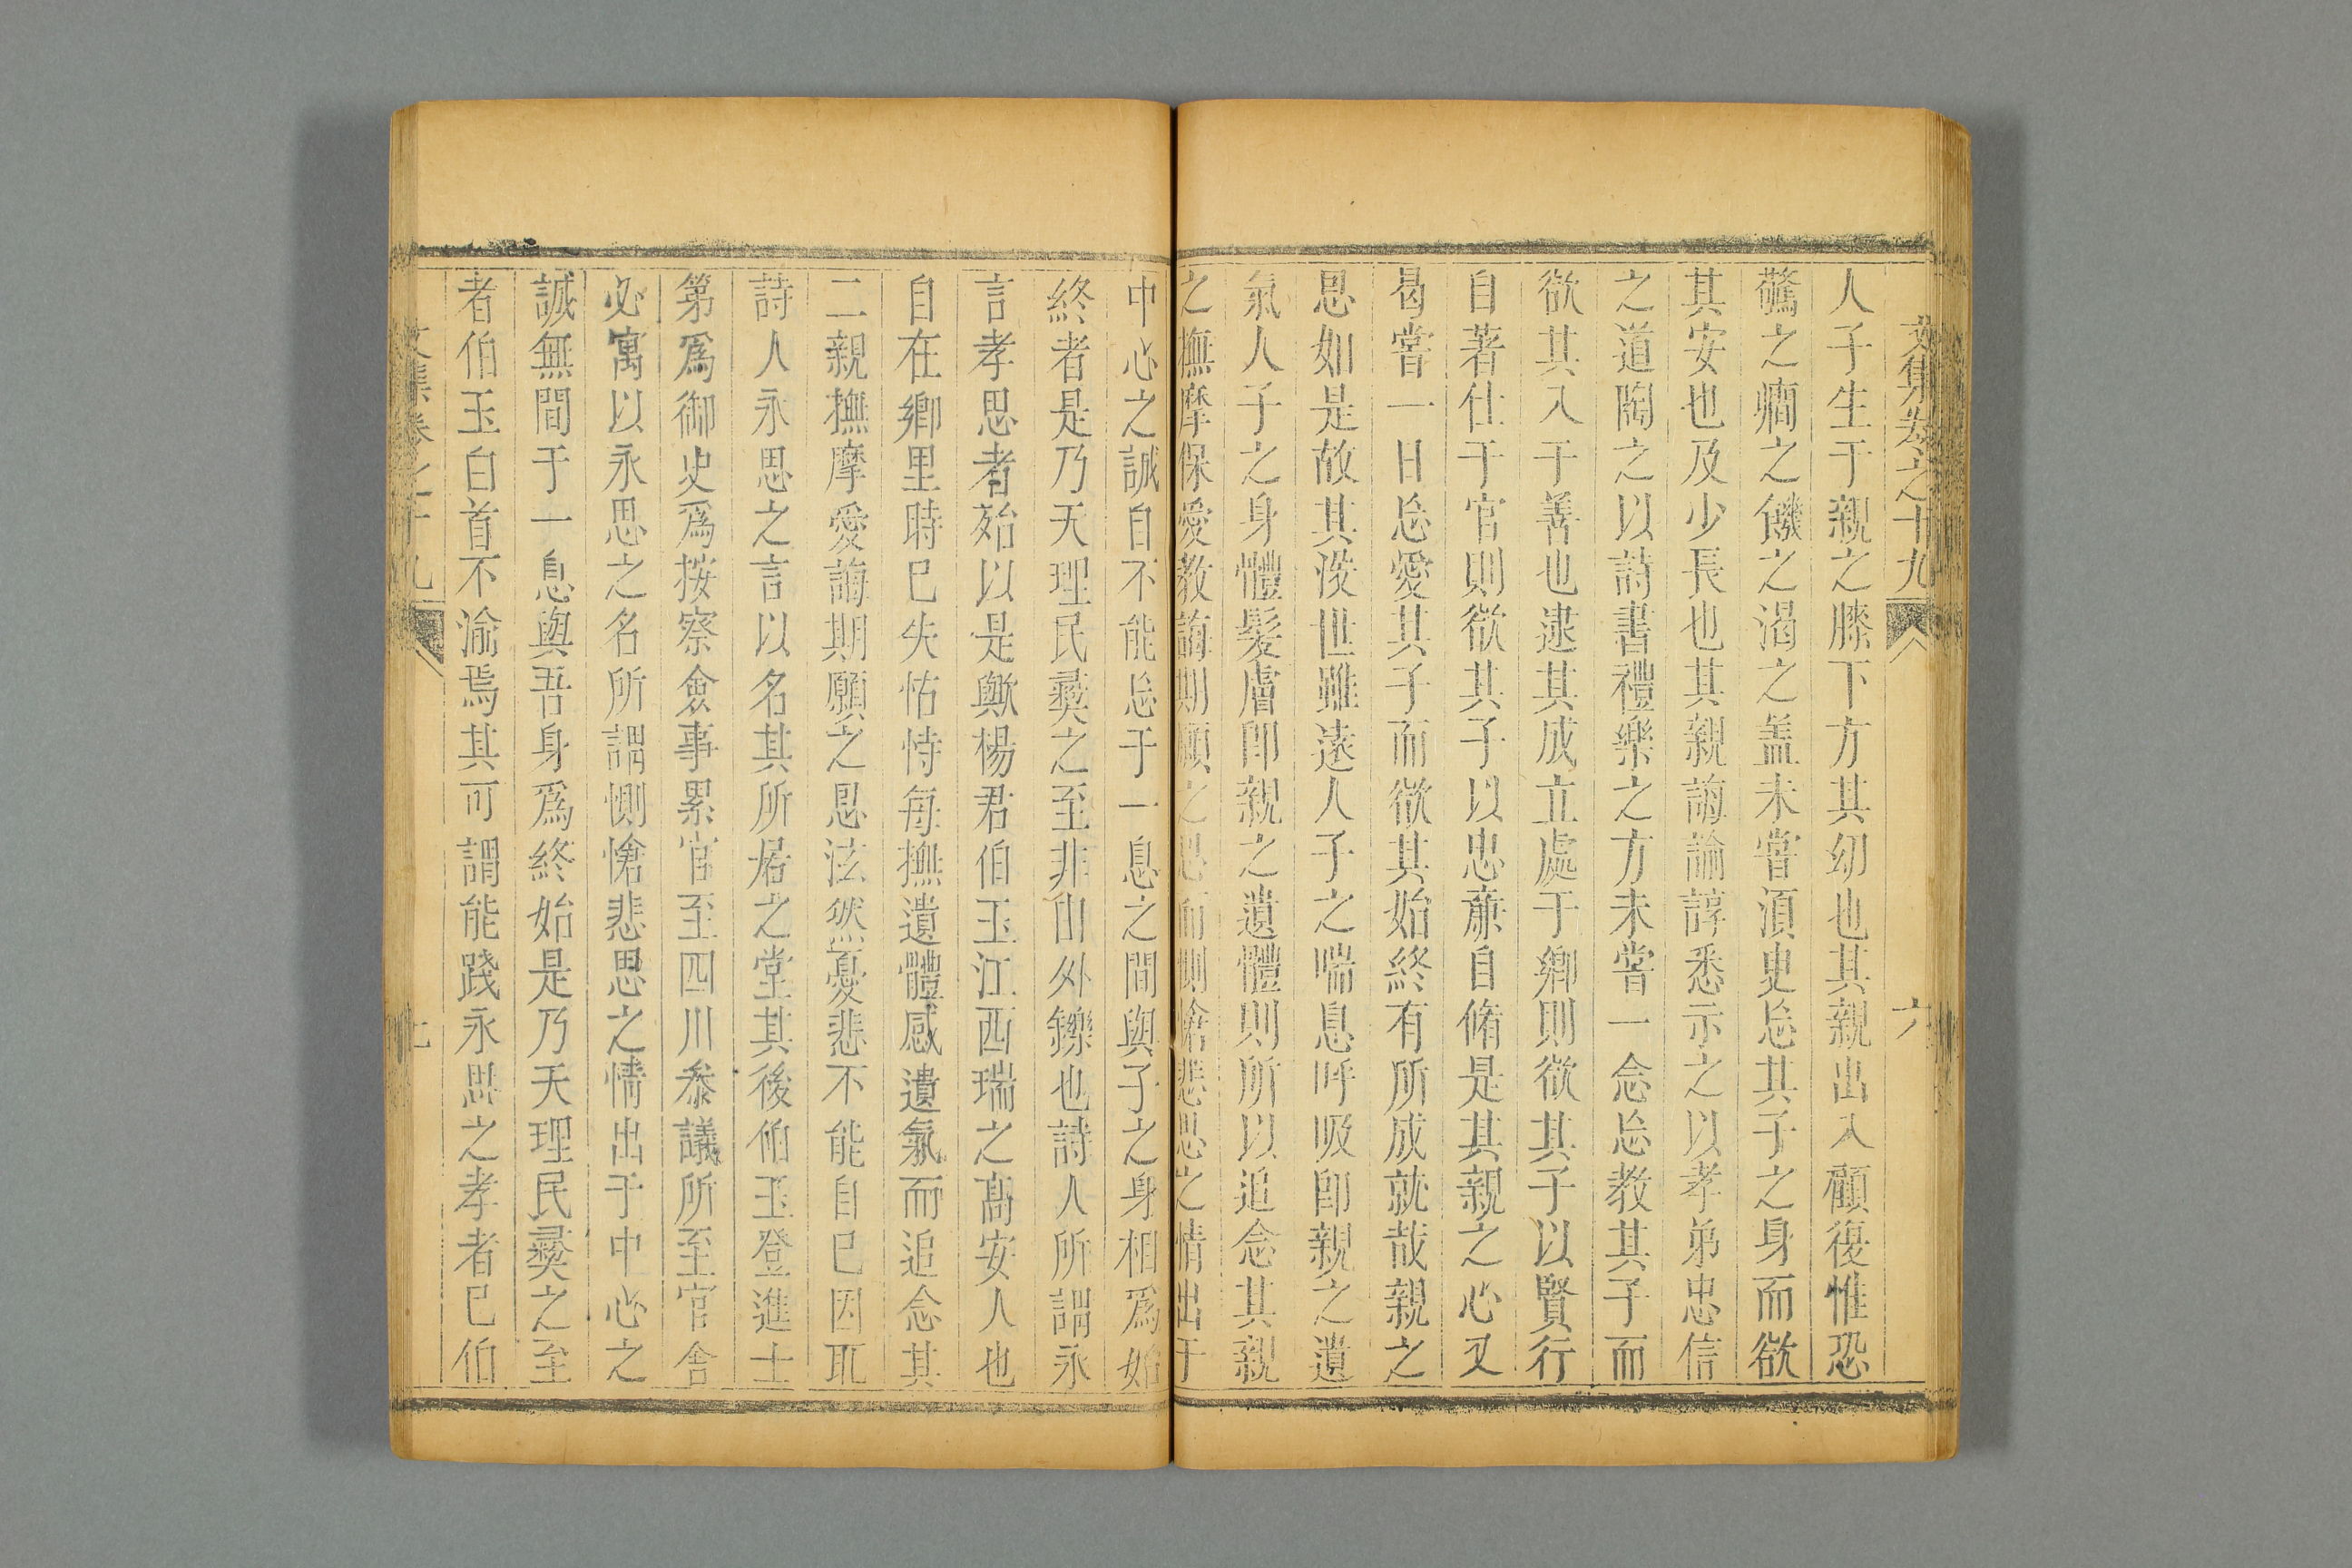 文集卷之十九
六
人子生于親之膝下方其幼也其親出入顧復惟恐
驚之癎之饑之渴之盖未嘗湏臾忘其子之身而欲
其安也及少長也其親誨諭諄悉示之以孝弟忠信
之道陶之以詩書禮樂之方未嘗一念忘教其子而
欲其入于善也逮其成立處于鄉則欲其子以賢行
自著仕于官則欲其子以忠亷自脩是其親之心又
曷嘗一日忘愛其子而欲其始終有所成就哉親之
恩如是故其没世雖遠人子之喘息呼吸即親之遺
氣人子之身體髮膚即親之遺體則所以追念其親
之撫摩保愛教誨期願之恩而惻愴悲思之情出于
中心之誠自不能忘于一息之間與子之身相爲始
終者是乃天理民彝之至非由外鑠也詩人所謂永
言孝思者殆以是歟楊君伯玉江西瑞之髙安人也
自在鄉里時已失怙恃每撫遺體感遺氣而追念其
二親撫摩愛誨期願之恩泫然憂悲不能自已因取
詩人永思之言以名其所居之堂其後伯玉登進士
第爲御史爲按察僉事累官至四川叅議所至官舍
必寓以永思之名所謂惻愴悲思之情出于中心之
誠無間于一息與吾身爲終始是乃天理民彝之至
者伯玉白首不渝焉其可謂能踐永思之孝者已伯
文集卷之十九
七